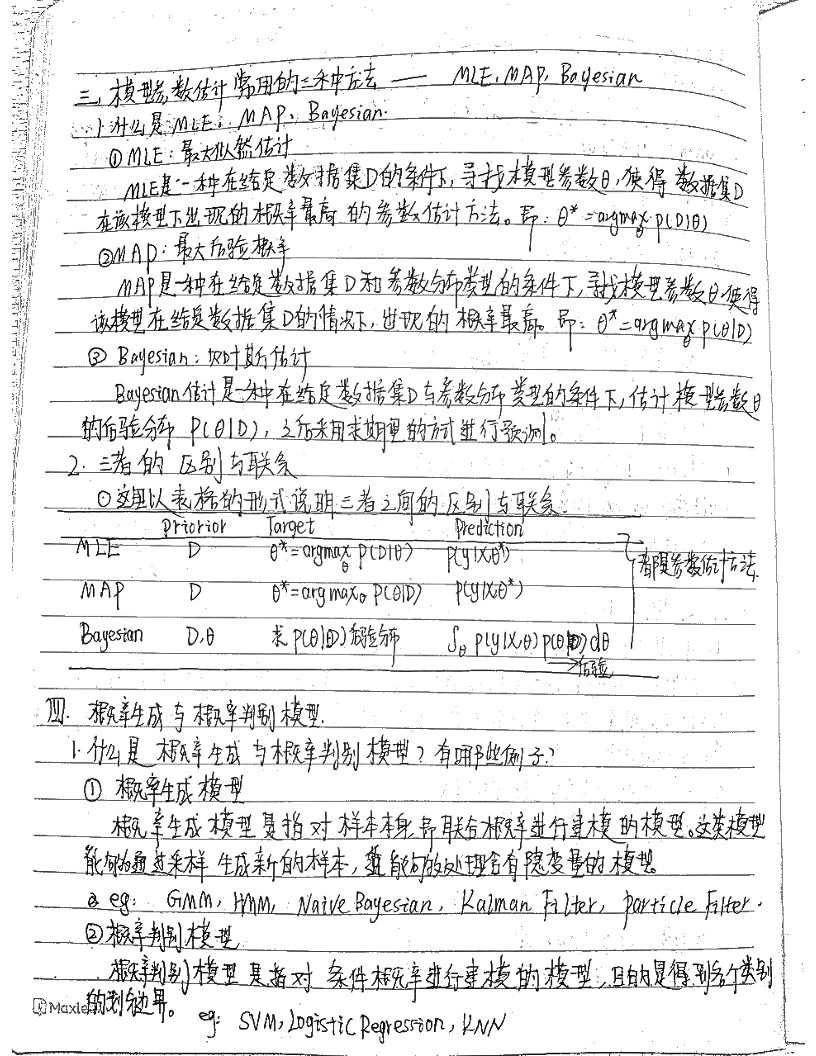 三、模型参数估计常用的三种方法 —— MLE、MAP、Bayesian
1. 什么是MLE、MAP、Bayesian.
①MLE：最大似然估计
MLE是一种在给定数据集D的条件下，寻找模型参数θ，使得数据集D
在该模型下出现的概率最高的参数估计方法。即：θ*=argmaxθ P(D|θ)
②MAP：最大后验概率
MAP是一种在给定数据集D和参数分布类型的条件下，寻找模型参数θ，使得
该模型在给定数据集D的情况下，出现的概率最高。即：θ*=argmaxθ P(θ|D)
③ Bayesian：贝叶斯估计
Bayesian估计是一种在给定数据集D与参数分布类型的条件下，估计模型参数θ
的后验分布 P(θ|D)，之后采用求期望的方式进行预测。
2. 三者的区别与联系
①这里以表格的形式说明三者之间的区别与联系.
Priorior Target Prediction
MLE D θ*=argmaxθ P(D|θ) P(y|X,θ*)
都是参数估计方法.
MAP D θ*=argmaxθ P(θ|D) P(y|X,θ*)
Bayesian D.θ 求P(θ|D)后验分布 ∫θ P(y|X,θ)P(θ|D)dθ
→后验
四. 概率生成与概率判别模型.
1. 什么是概率生成与概率判别模型？有哪些例子？
① 概率生成模型
概率生成模型是指对样本本身即联合概率进行建模的模型。这类模型
能够通过采样生成新的样本，能够处理含有隐变量的模型。
eg: GMM, HMM, Naive Bayesian, Kalman Filter, particle Filter.
②概率判别模型
概率判别模型是指对条件概率进行建模的模型，目的是得到各个类别
的划分边界。
eg: SVM, Logistic Regression, KNN
Maxle